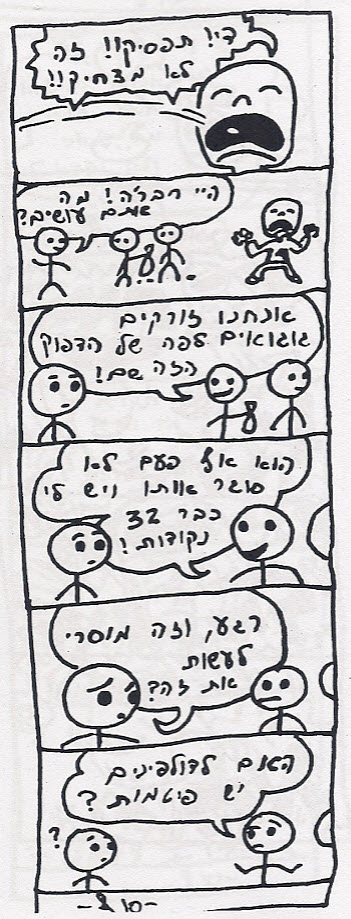 די! תפסיקו!! זה
לא מצחיק!!
היי חבר'ה! מה
אתם עושים?
אנחנו זורקים
גוגואים לפה של הדפוק
הזה שם!
הוא אף פעם לא
סוגר אותו ויש לי
כבר 32
נקודות!
רגע, וזה מוסרי
לעשות
את זה?
האם לדולפינים
יש פיטמות?
?
-סוף-